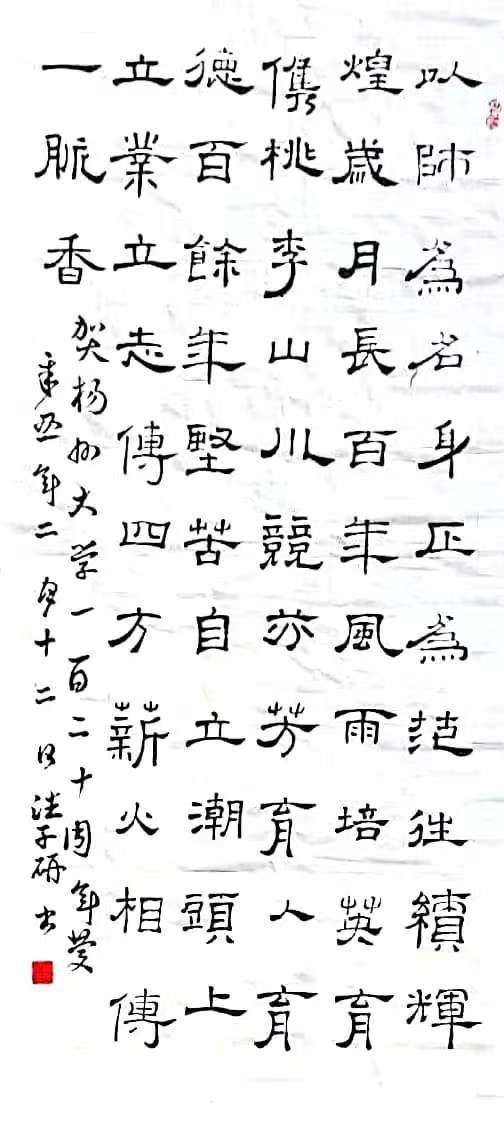 以師爲名身正爲范往績輝
煌歲月長百年風雨培英育
儁桃李山川競亦芳育人育
德百餘年堅苦自立潮頭上
立業立志傳四方薪火相傳
一脈香
贺杨州大学一百二十周年慶
辛丑年二月十二日子研书